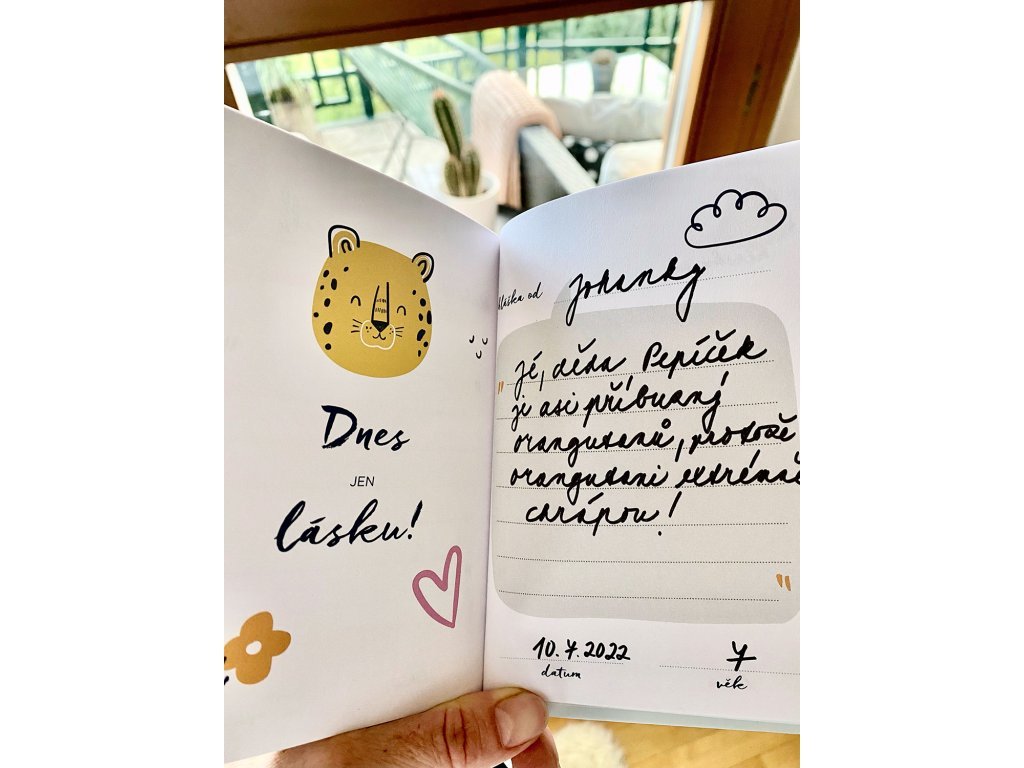 Dnes
JEN
lásku!
hláška od Johanky
"Jé, děda Pepíček
je asi příbuzný
orangutanů, protože
orangutani extrémně
chrápou!
"
10.7.2022 7
datum věk